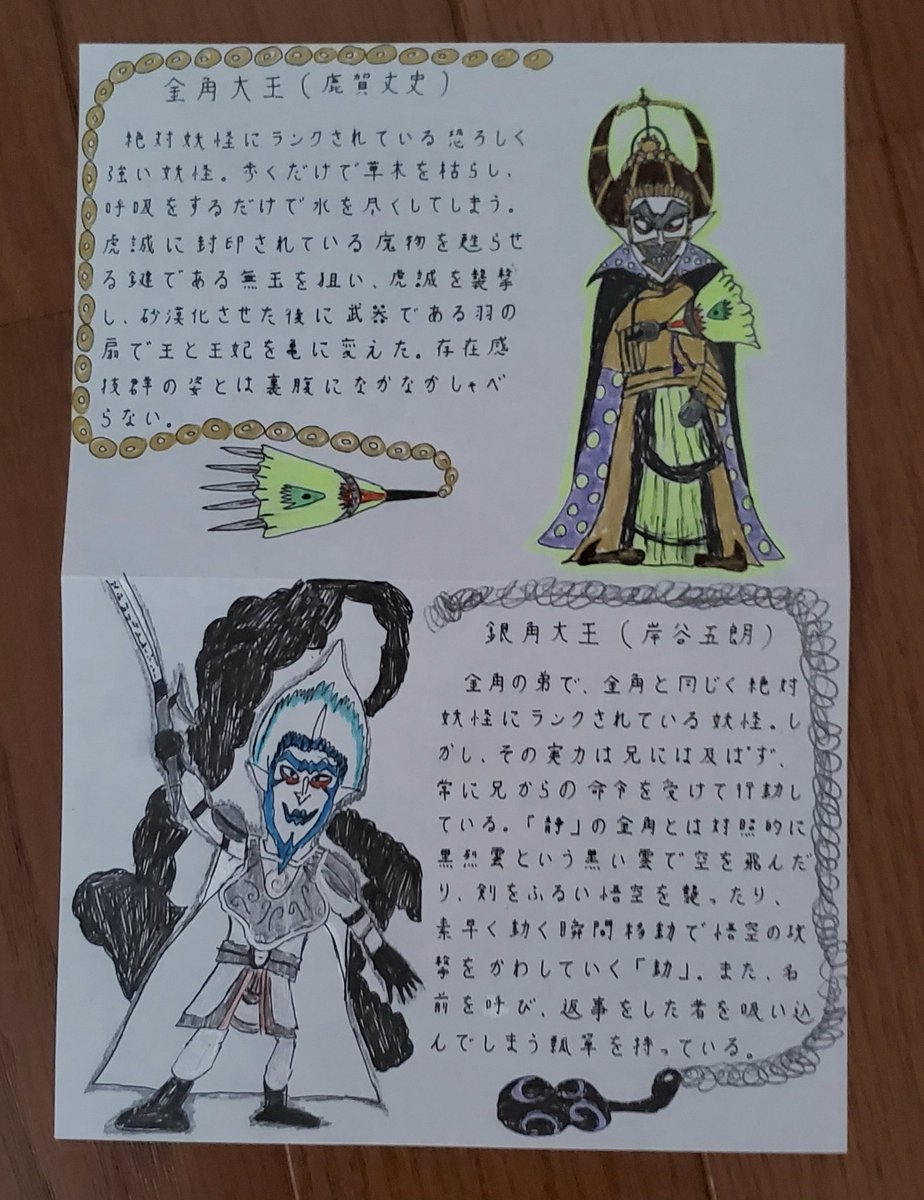 金角大王(鹿賀丈史)
絶対妖怪にランクされている恐ろしく
強い妖怪。歩くだけで草木を枯らし、
呼吸をするだけで水を尽くしてしまう。
虎誠に封印されている魔物を甦らせ
る鍵である無玉を狙い、虎誠を襲撃
し、砂漠化させた後に武器である羽の
扇で王と王妃を亀に変えた。存在感
抜群の姿とは裏腹になかなかしゃべ
らない。
銀角大王(岸谷五朗)
金角の弟で、金角と同じく絶対
妖怪にランクされている妖怪。し
かし、その実力は兄には及ばず、
常に兄からの命令を受けて行動し
ている。「静」の金角とは対照的に
黒烈雲という黒い雲で空を飛んだ
り、剣をふるい悟空を襲ったり、
素早く動く瞬間移動で悟空の攻
撃をかわしていく「動」。また、名
前を呼び、返事をした者を吸い込
んでしまう瓢箪を持っている。